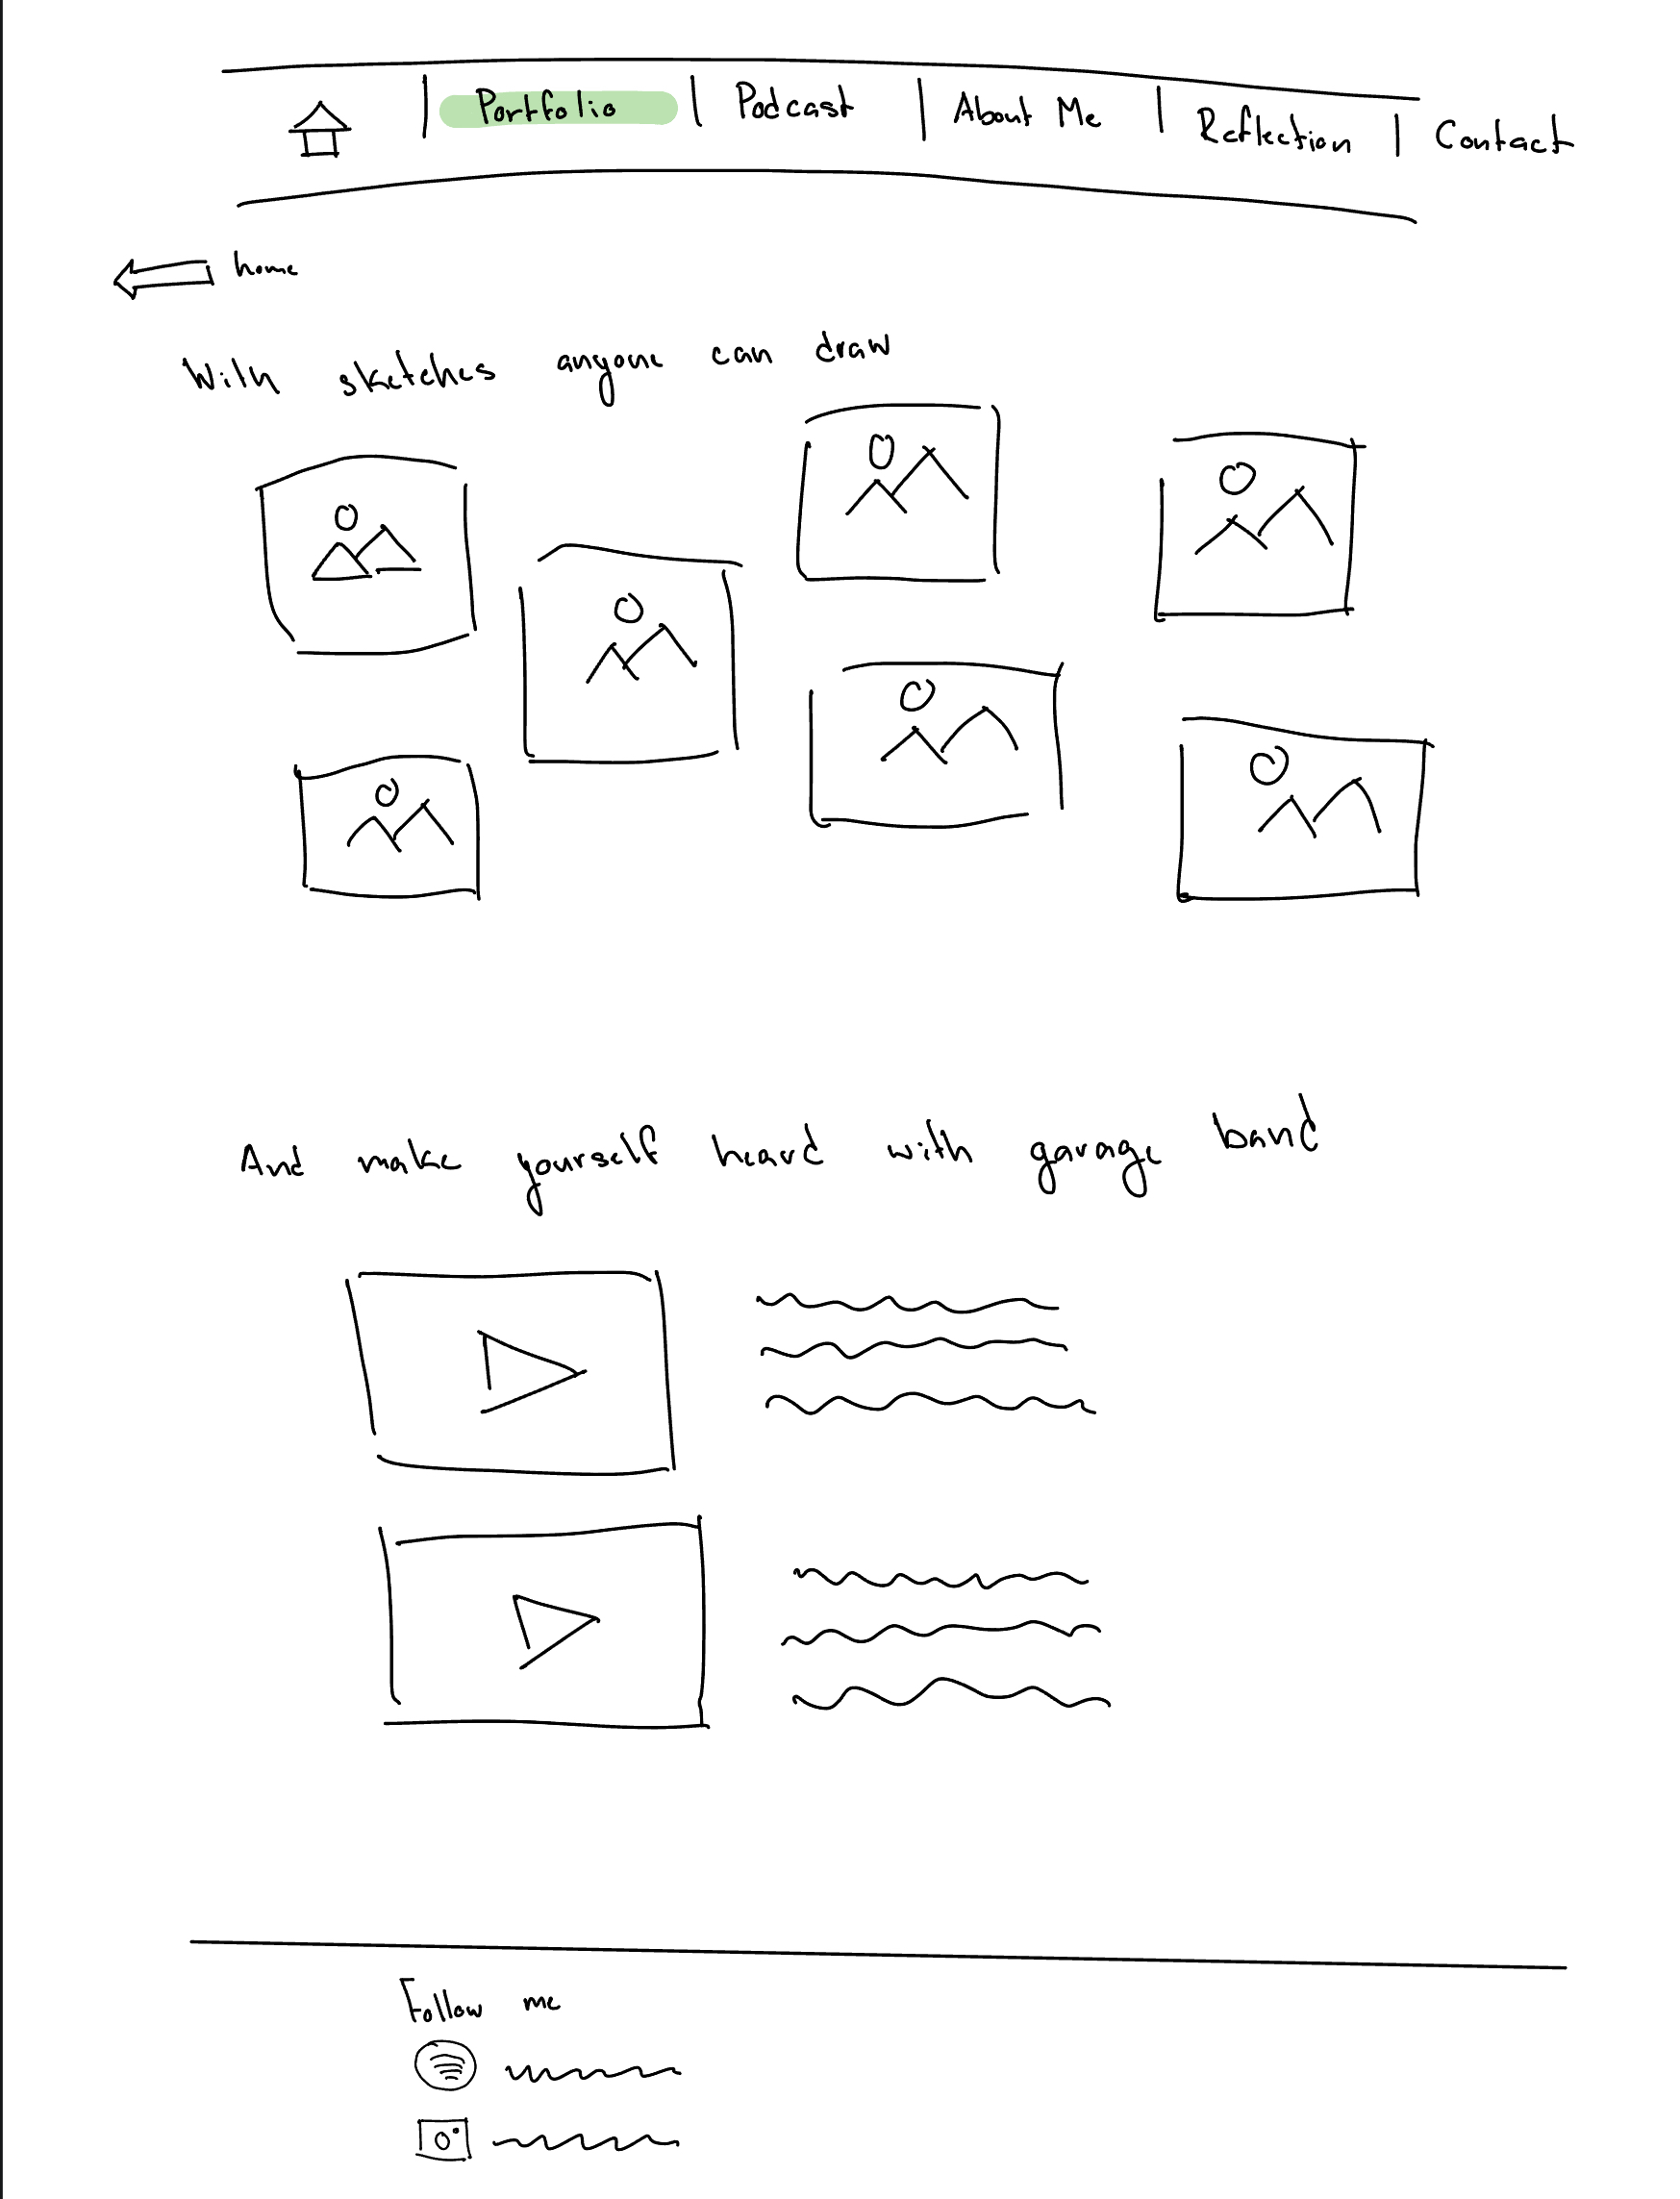 Portfolio | Podcast | About Me | Reflection | Contact
home
With sketches anyone can draw
And make yourself heard with garage band
Follow me